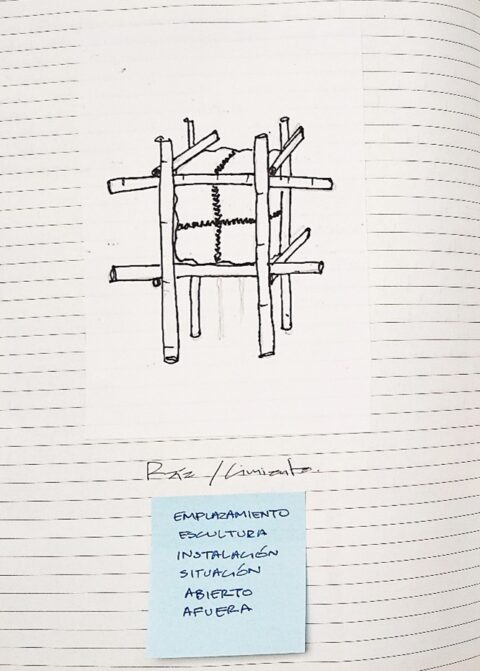 Raíz / Cimiento.
EMPLAZAMIENTO
ESCULTURA
INSTALACIÓN
SITUACIÓN
ABIERTO
AFUERA